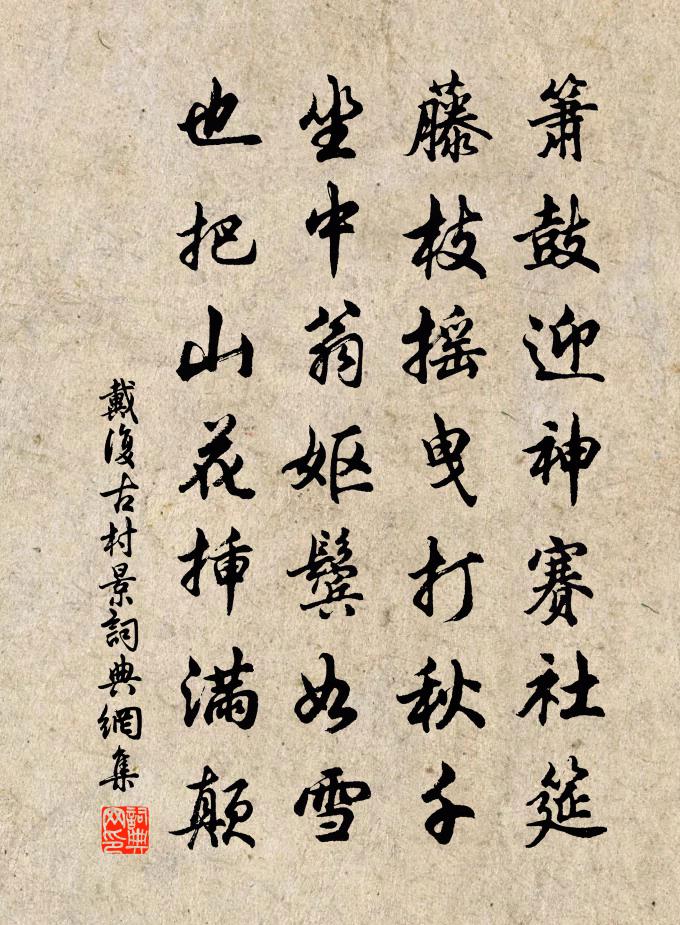 簫鼓迎神賽社筵
藤枝搖曳打秋千
坐中翁嫗鬢如雪
也把山花插滿顛
戴復古村景詞典網集
詞典網印